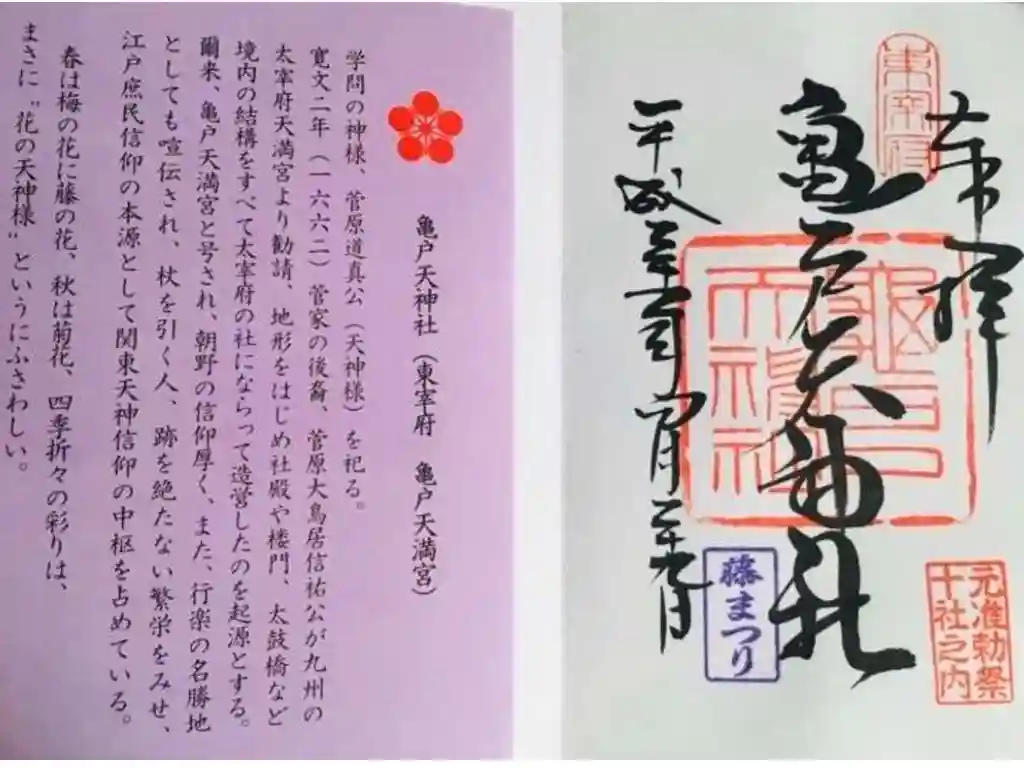 奉拝
東宰府
亀戸天神社
亀戸
天神社
元准勅祭
十社之内
藤まつり
平成 四月二十九日
亀戸天神社（東宰府　亀戸天満宮）
学問の神様、菅原道真公（天神様）を祀る。
寛文二年（一六六二）菅家の後裔、菅原大鳥居信祐公が九州の
太宰府天満宮より勧請、地形をはじめ社殿や楼門、太鼓橋など
境内の結構をすべて太宰府の社にならって造営したのを起源とする。
爾来、亀戸天満宮と号され、朝野の信仰厚く、また、行楽の名勝地
としても喧伝され、杖を引く人、跡を絶たない繁栄をみせ、
江戸庶民信仰の本源として関東天神信仰の中枢を占めている。
春は梅の花に藤の花、秋は菊花、四季折々の彩りは、
まさに〝花の天神様〟というにふさわしい。